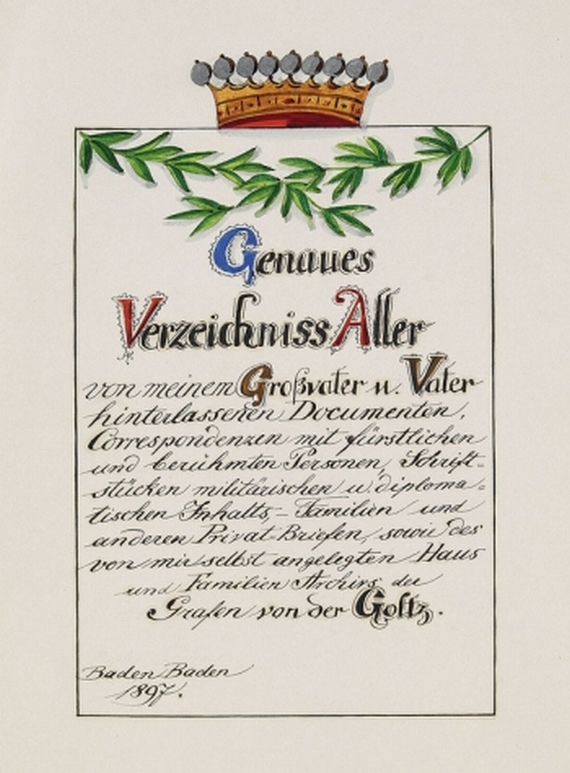 Genaues
Verzeichniss Aller
von meinem Großvater u. Vater
hinterlassenen Documenten,
Correspondenzen mit fürstlichen
und berühmten Personen, Schrift-
stücken militärischen u. diploma-
tischen Inhalts, - Familien und
anderen Privat-Briefen, sowie des
von mir selbst angelegten Haus
und Familien Archivs der
Grafen von der Goltz.
Baden Baden
1897.